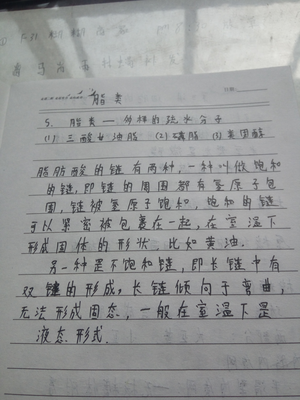 脂类
5. 脂类 — 多样的疏水分子
(1) 三酸甘油脂 (2) 磷脂 (3) 类固醇
脂肪酸的链有两种，一种叫做饱和
的链，即链的周围都有氢原子包
围，链被氢原子饱和，饱和的链
可以紧密被包裹在一起，在室温下
形成固体的形状，比如黄油。
另一种是不饱和链，即长链中有
双键的形成，长链倾向于弯曲，
无法形成固态，一般在室温下是
液态形式.